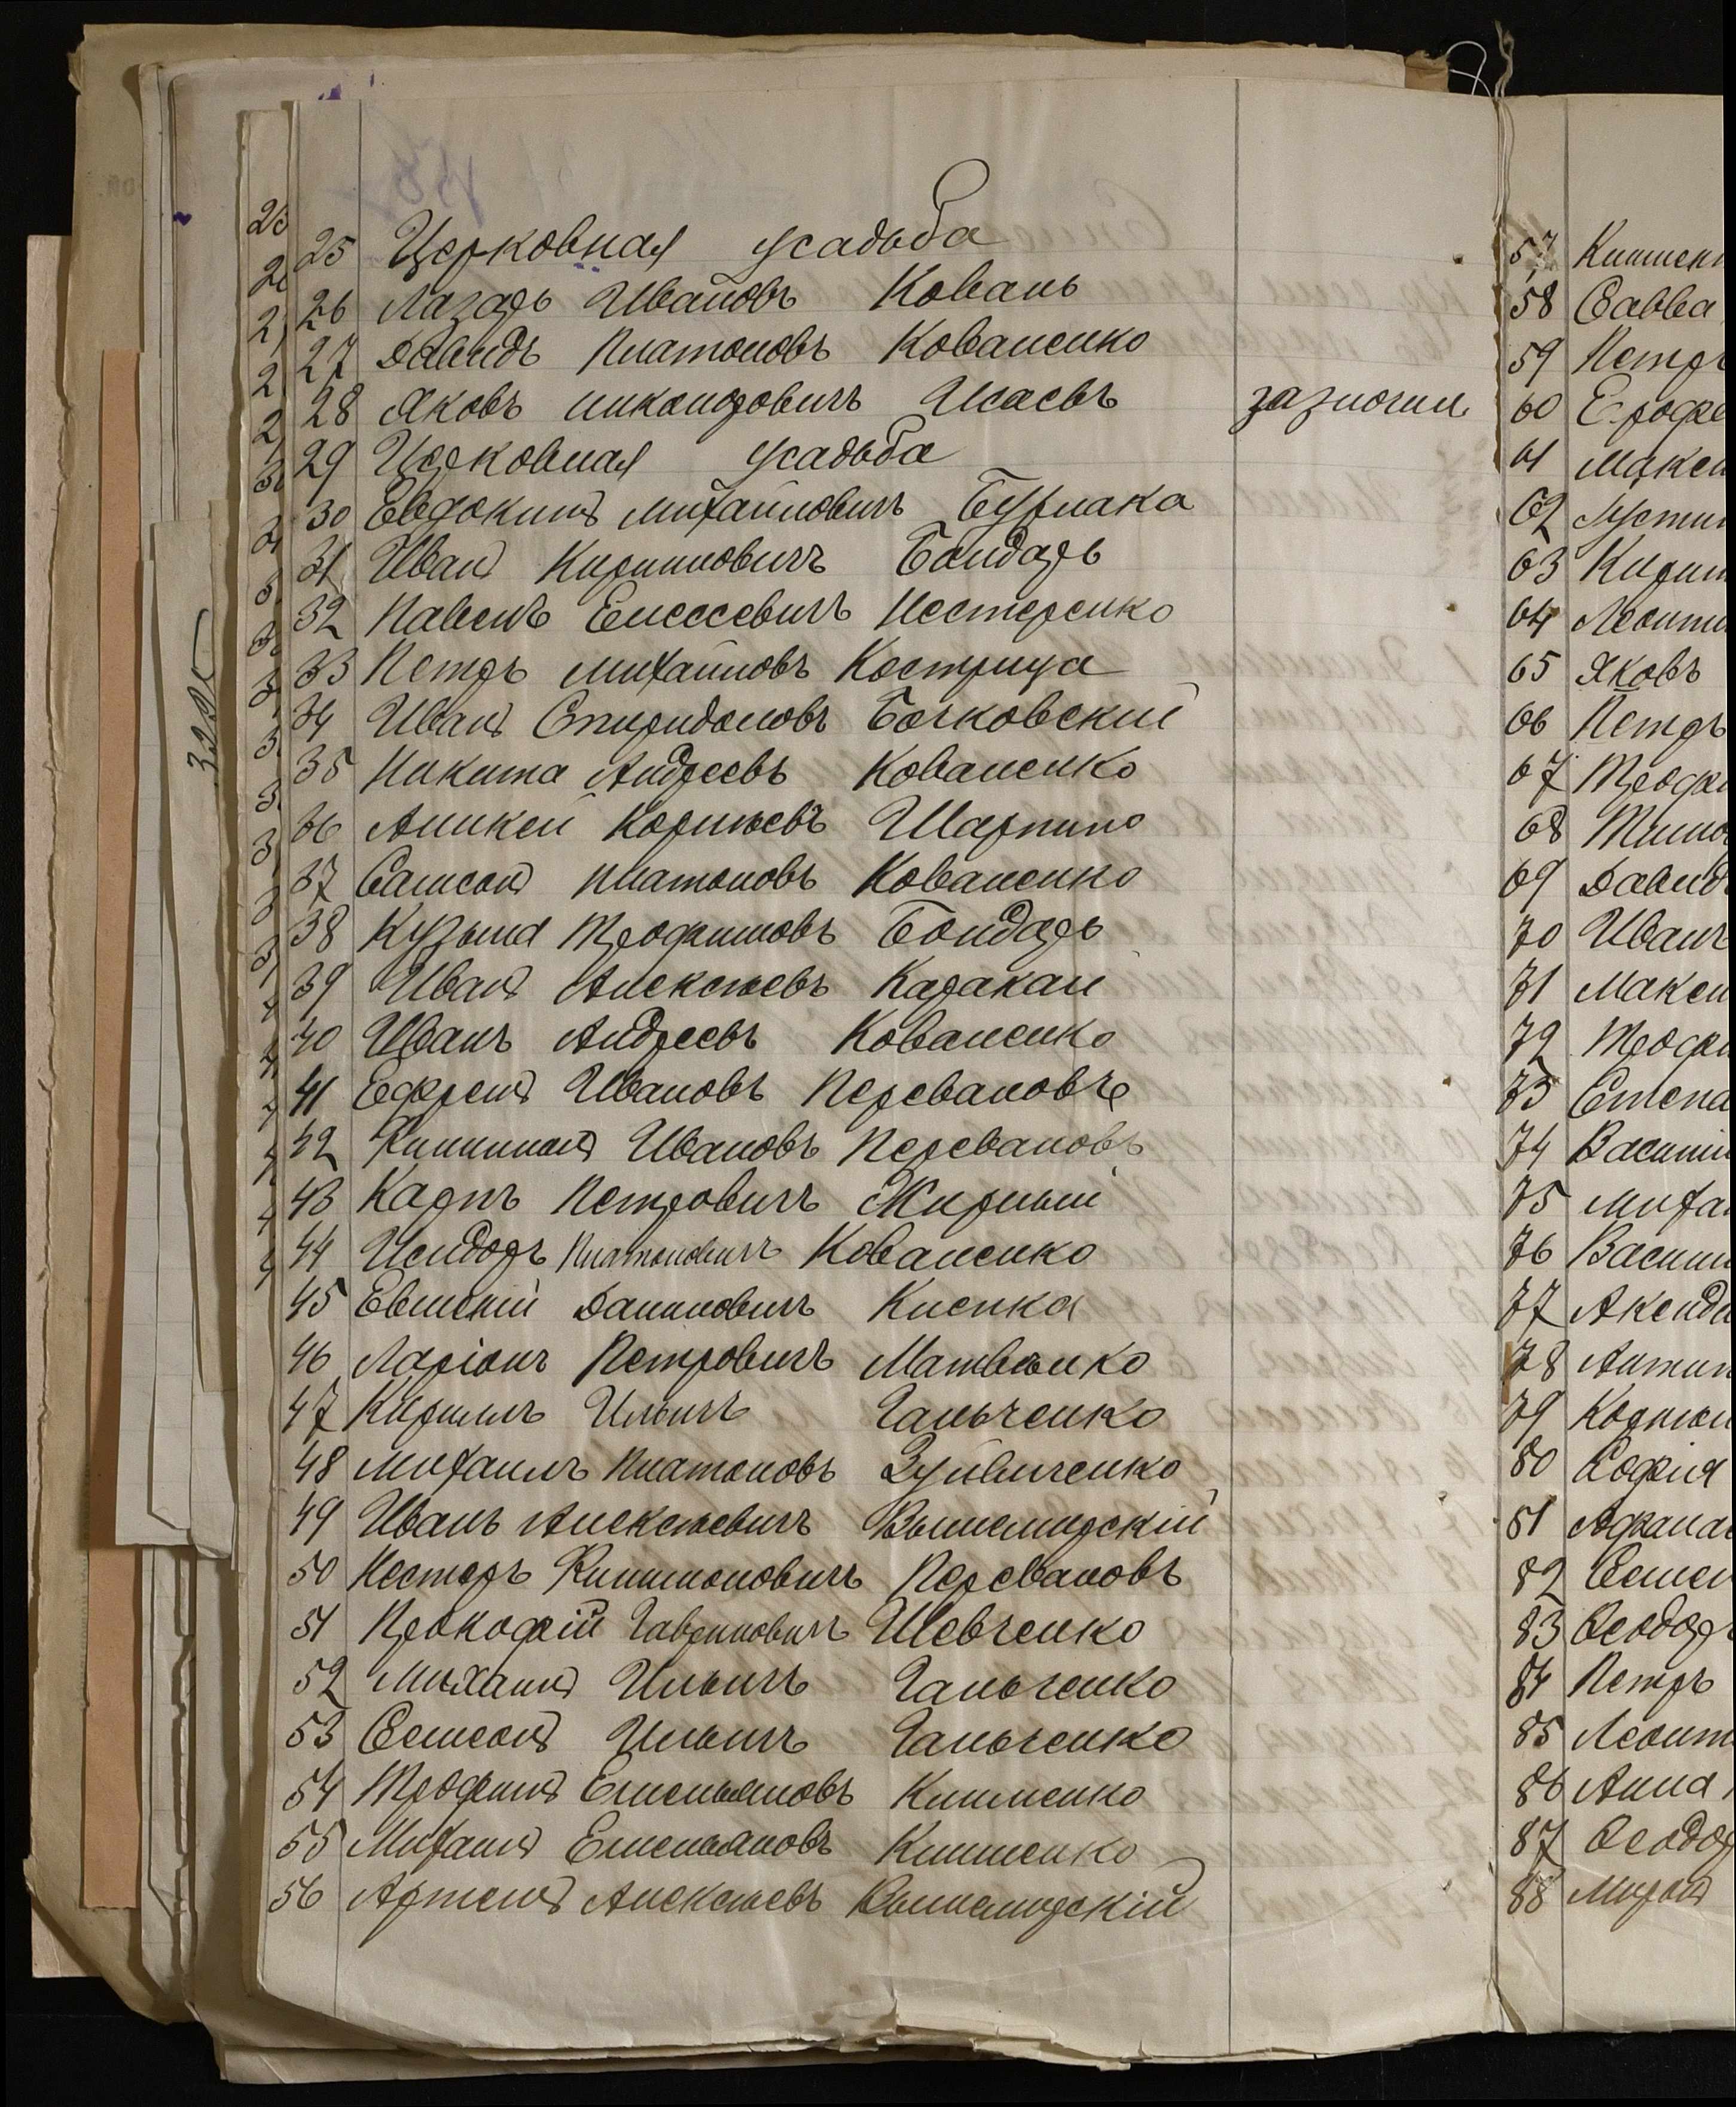 25 Церковная усадьба
26 Лазарь Ивановъ Коваль
27 Давидъ Платоновъ Коваленко
28 Яковъ Никоноровичъ Исаевъ
29 Церковная усадьба
30 Евдокимъ Михайловичъ Бурлака
31 Иванъ Кирилловичъ Бондарь
32 Павелъ Елисеевичъ Нестеренко
33 Петръ Михайловъ Кострица
34 Иванъ Спиридоновъ Бочковский
35 Никита Андреевъ Коваленко
36 Аникей Корнѣевъ Шарпило
37 Самсонъ Платоновъ Коваленко
38 Кузьма Трофимовъ Бондарь
39 Иванъ Алексѣевъ Каракай
40 Иванъ Андреевъ Коваленко
41 Ефремъ Ивановъ Переваловъ
42 Филимонъ Ивановъ Переваловъ
43 Карпъ Петровичъ Жирный
44 Исидоръ Платоновичъ Коваленко
45 Даниловичъ
46 Ларіонъ Петровичъ Матвѣенко
47 Кириллъ Ильичъ Гальченко
48 Михаилъ Платоновъ
49 Иванъ Алексѣевичъ Вышемирскій
50 Нестеръ Филимоновичъ Переваловъ
51 Прокофій Гавриловичъ Шевченко
52 Михаилъ Ильичъ Гальченко
53 Семенъ Ильичъ Гальченко
54 Трофимъ Емельяновъ Клименко
55 Михаилъ Емельяновъ Клименко
56 Артемъ Алексѣевъ Вышемирскій
57
58 Савва
59 Петръ
60 Ерофе
61 Макси
62 Устин
63 Кирил
64 Леонти
65 Яковъ
66 Петръ
67 Трофи
68 Тимо
69 Давид
70 Иванъ
71 Макси
72 Трофи
73 Степа
74 Василі
75 Миха
76 Васили
77 Акенди
78 Антип
79
80 София
81 Афана
82 Семен
83 Феодоръ
84 Петръ
85 Леонт
86 Анна
87 Феодор
88 Миронъ